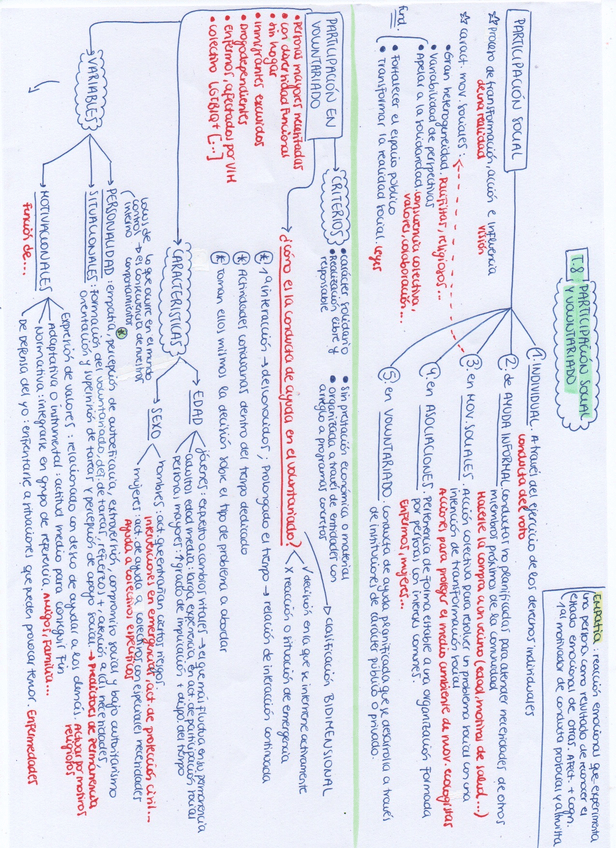 T.8 PARTICIPACIÓN SOCIAL
Y VOLUNTARIADO
EMPATÍA: reacción emocional que experimenta
una persona como resultado de reconocer el
estado emocional de otros. Afect. + Cogn.
1er motivador de conducta prosocial y altruista
PARTICIPACIÓN SOCIAL
Proceso de transformación, acción e influencia
de una realidad visión
caract. mov. sociales:
• Gran heterogeneidad. Pacifistas, religiosos...
• Variabilidad de perspectivas
• Apelar a la solidaridad, conciencia colectiva,
valores, colaboración...
fund.
• Fortalecer el espacio público
• Transformar la realidad social. Leyes
1. INDIVIDUAL. A través del ejercicio de los derechos individuales
conducta del voto
2. de AYUDA INFORMAL conductas no planificadas para atender necesidades de otros
miembros próximos de la comunidad
Hacerle la compra a un vecino (edad, motivos de salud...)
3. en MOV. SOCIALES. Acción colectiva para resolver un problema social con una
intención de transformación social
Acciones para proteger el medio ambiente de mov. ecologistas
4. en ASOCIACIONES. Pertenencia de forma estable a una organización formada
por personas con interés comunes.
Enfermos, mujeres...
5. en VOLUNTARIADO. conducta de ayuda planificada que se desarrolla a través
de instituciones de carácter público o privado.
PARTICIPACIÓN EN
VOLUNTARIADO
• Personas mayores necesitadas
• con diversidad funcional
• sin hogar
• inmigrantes excluidos
• Drogodependientes
• enfermos, afectados por VIH
• colectivo LGTBIQ+ [...]
CRITERIOS
• carácter solidario
• Realización libre y
responsable
• Sin prestación económica o material
• organizada a través de entidades con
arreglo a programas concretos
¿Cómo es la conducta de ayuda en el voluntariado?
clasificación BIDIMENSIONAL
✓ decisión en la que se interviene activamente
X reacción a situación de emergencia
1ª interacción → desconocidos; Prolongado el tiempo → relación de interacción continuada
Actividades cotidianas dentro del tiempo dedicado
Toman ellos mismos la decisión sobre el tipo de problema a abordar
CARACTERÍSTICAS
EDAD
jóvenes: expuesto a cambios vitales → ↓ que más fluctúa en su permanencia
adultos edad media: larga experiencia en act. de participación social
personas mayores: ↑ grado de implicación + dispo. del tiempo
SEXO
hombres: act. que entrañan ciertos riesgos.
intervenciones en emergencias, act. de protección civil...
mujeres: act. de ayuda a colectivos con especiales necesidades
Ayuda a colectivos específicos
VARIABLES
PERSONALIDAD: empatía, percepción de autoeficacia, extrovertidos, compromiso social y bajo autoritarismo
Locus de control → lo que ocurre en el mundo
(interno) es consecuencia de nuestros
comportamientos
SITUACIONALES: Formación del voluntariado, def. de tareas, refuerzos + atención a las necesidades,
orientación y supervisión de tareas y percepción de apoyo social → Predictores de permanencia
MOTIVACIONALES
Función de...
Expresión de valores: relacionado con deseo de ayudar a los demás. Actuar por motivos
religiosos
Adaptativa o instrumental: actitud medio para conseguir Fin
Normativa: integrarse en grupo de referencia Amigos, Familia...
De defensa del yo: enfrentarse a situaciones que puedan provocar temor. Enfermedades